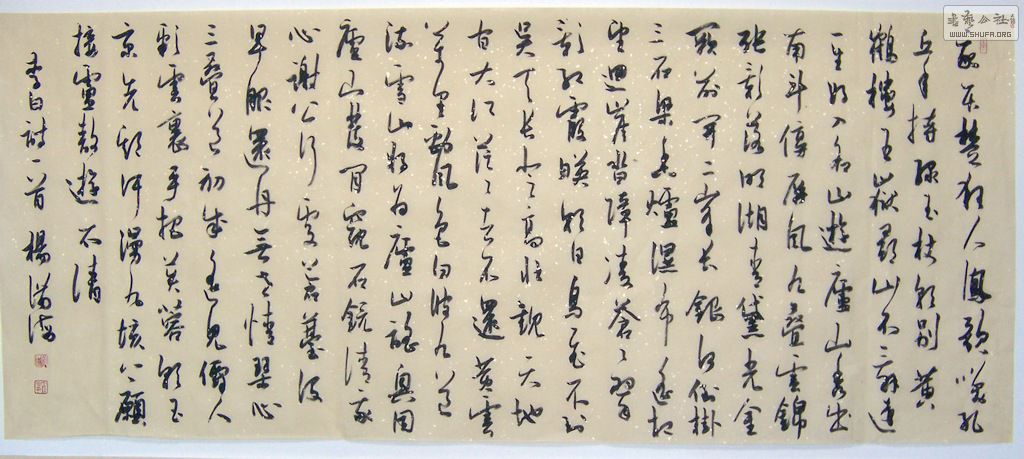 我本楚狂人鳳歌笑孔
丘手持綠玉杖朝別黃
鶴樓五嶽尋山不辭遠
一生好入名山遊廬山秀出
南斗傍屏風九疊雲錦
張影落明湖青黛光金
闕前開二峰長銀河倒掛
三石梁香爐瀑布遙相
望迴崖沓障凌蒼々翠
影紅霞映朝日鳥飛不到
吳天長登高壯觀天地
間大江茫々去不還黃雲
萬里動風色白波九道
流雪山好為廬山謠興因
廬山發閒窺石鏡清我
心謝公行處蒼苔沒
早服還丹無世情琴心
三疊道初成遙見仙人
彩雲裏手把芙蓉朝玉
京先期汗漫九垓上願
接盧敖遊太清
李白詩一首 楊
WWW.SHUFA.ORG